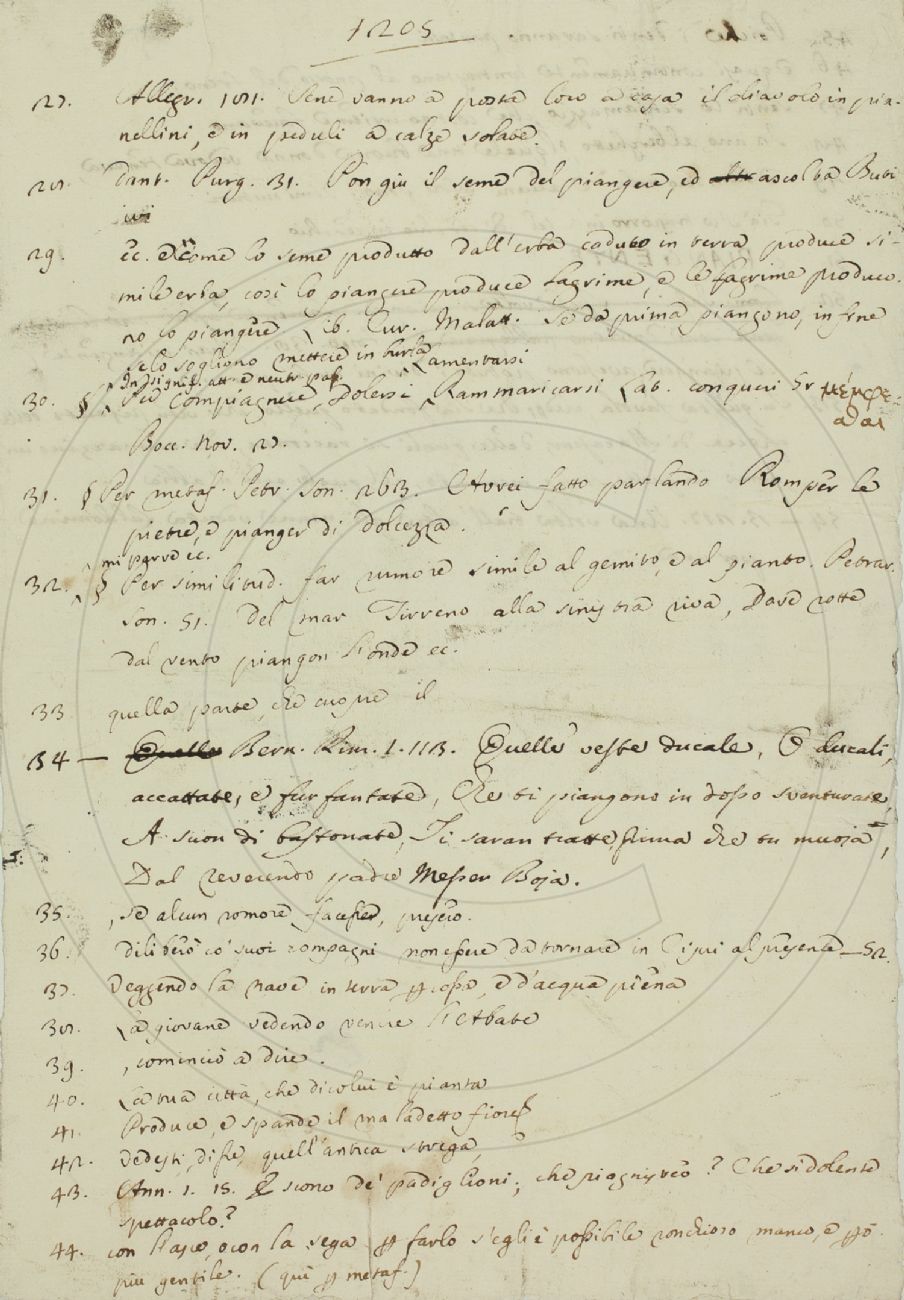 1205
27. Allegr. 171. Sene vanno a posta loro a caja il diavolo in pia-
nellini, e in peduli a calze solate.
28. Dant. Purg. 31. Pon giu il seme del piangere, ed ascolta
29. ec. e come lo seme produtto dall'erba caduto in terra produce si-
mile erba, così lo piangere produce lagrime, e le lagrime produco-
no lo piangere Lib. Cur. Malatt. Se da prima piangono, in fine
se lo sogliono mettere in burla
Lamentarsi
In signif. att. e neutr. pass.
30. § Per Compiagnere, Dolersi Rammaricarsi Lat. conqueri Gr μέμφε-
σθαι
Bocc. Nov. 27.
31. § Per metaf. Petr. son. 263. Avrei fatto parlando Romper le
pietre, e pianger di dolcezza.
mi parve ec.
32. § Per similitud. far rumore simile al gemito, e al pianto. Petrar.
son. 51. Del mar Tirreno alla sinistra riva, Dove rotte
dal vento piangon l'onde ec.
33 quella parte, che cuopre il
34 — Bern. Rim. 1. 113. Quelle veste ducale, O ducali,
accattate, e furfantate, Che ti piangono in dosso sventurate,
A suon di bastonate, Ti saran tratte prima che tu muoja,
Dal reverendo padre Messer Boja.
35. , se alcun romore facesser, presero.
36. diliberò co' suoi compagni non essere da tornare in Cipri al presente — 52.
37. Veggendo la nave in terra p̱cossa, e d'acqua piena
38. La giovane vedendo venire l'Abate
39. , cominciò a dire.
40. La tua città, che di colui è pianta
41. Produce, e spande il maladetto fiore
42. Vedesti, disse, quell'antica strega,
43. Ann. 1. 15. Escono de' padiglioni; che piagnisteo? Che sì dolente
spettacolo?
44. con l'asce, o con la sega p̱ farlo s'egli è possibile ronchioso manco, e p̱ò
più gentile. (qui p̱ metaf.)